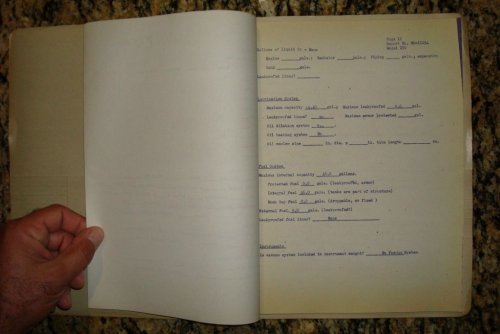 Page 12
Report No.
Model
Gallons of liquid in - None
Engine ______gals.; Radiator ______gals.; Piping ______ gals.; expansion
tank ______gals.
Leakproofed lines? ______
Lubrication System
Maximum capacity gal.; Maximum leakproofed gal.
Leakproofed lines? no Maximum armor protected ______gal.
Oil dilution system
Oil heating system
Oil cooler size ______ in. dia. x ______in. tube length ______ no.
Fuel System
Maximum internal capacity gallons.
Protected fuel 0.0 gals. (leakproofed, armor)
Integral fuel gals. (tanks are part of structure)
Bomb Bay fuel 0.0 gals. (dropable, or fixed )
External fuel 0.0 gals. (leakproofed?)
Leakproofed fuel lines? None
Instruments
Is vacuum system included in instrument weight? No Vacuum System